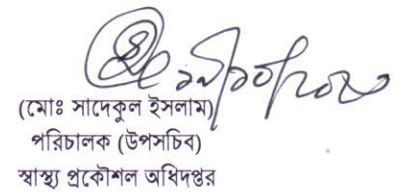 (মোঃ সাদেকুল ইসলাম)
পরিচালক (উপসচিব)
স্বাস্থ্য প্রকৌশল অধিদপ্তর